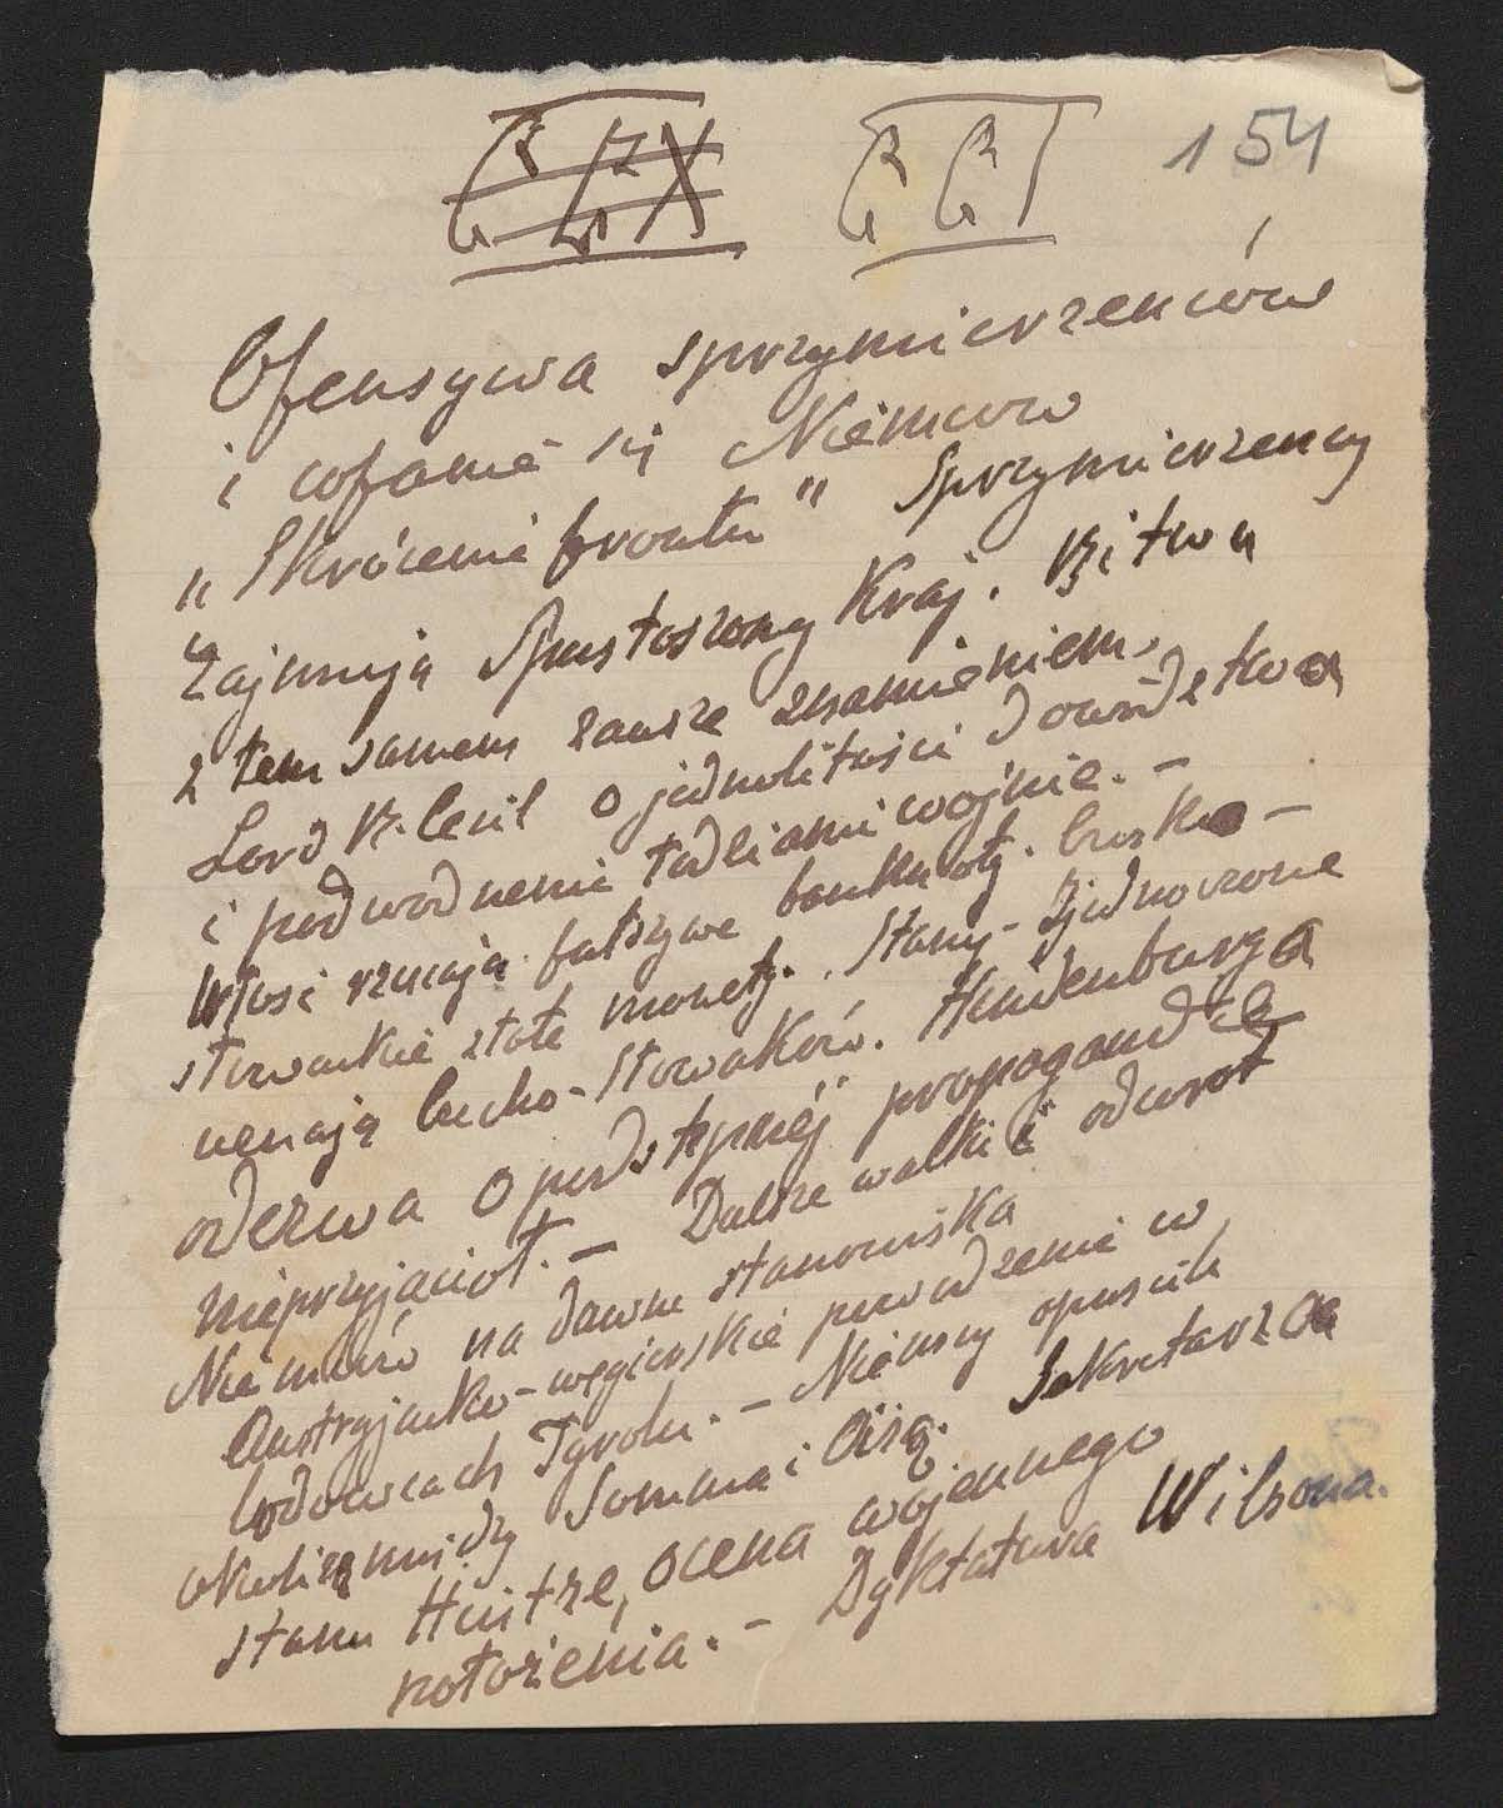 154
Ofensywa sprzymierzeńców
i cofanie się Niemców
„Skrócenie frontu" Sprzymierzeńcy
zajmują spustoszony Kraj. Bitwa
z tem samem zawsze znamieniem.
Lord R. Cecil o jednolitości dowództwa
i podwodnemi łodziami wojnie. -
Włosi rzucają fałszywe banknoty. Czesko-
słowackie złote monety. Stany-Zjednoczone
uznają Czecho-Słowaków. Hindenburga
odezwa o podstępnej propagandzie
nieprzyjaciół. - Dalsze walki i odwrót
Niemców na dawne stanowiska
Austryjacko-węgierskie powodzenie w
lodowcach Tyrolu. - Niemcy opuścili
okolicę między Somma i Oisą. Sekretarza
stanu Hintze, ocena wojennego
położenia. - Dyktatura Wilsona.